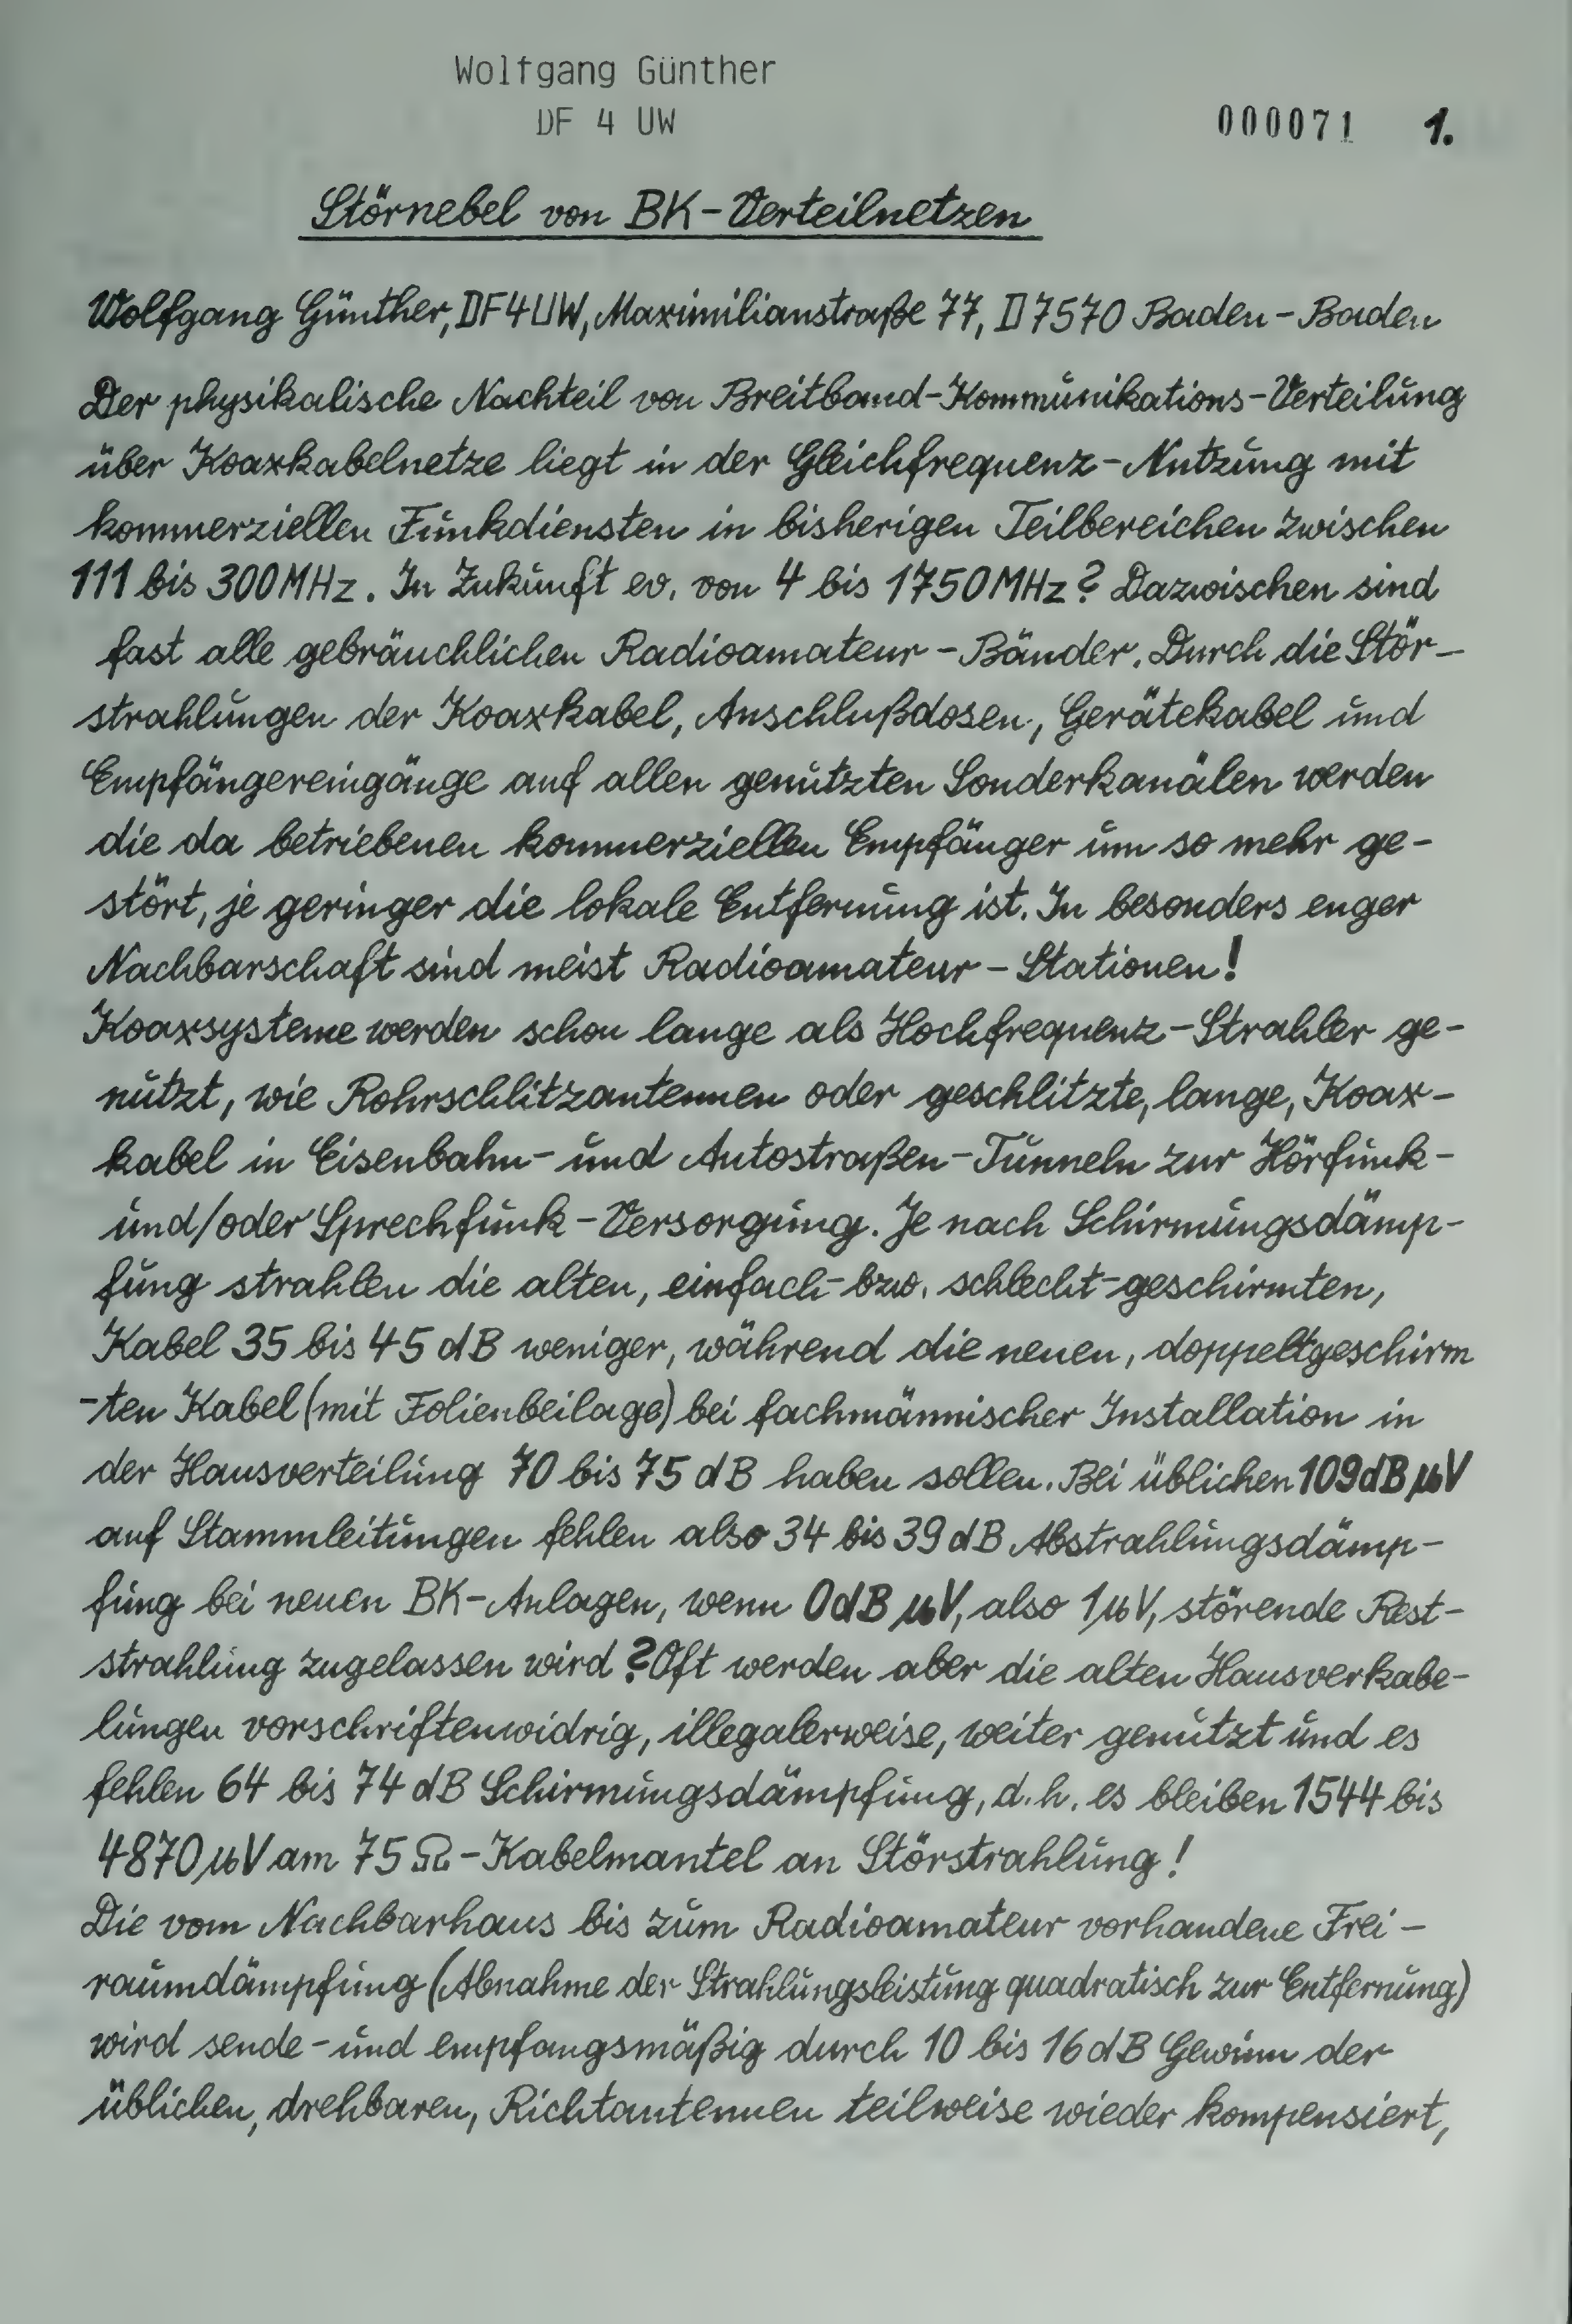 Wolfgang Günther
DF 4 UW
000071 1.
Störnebel von BK-Verteilnetzen
Wolfgang Günther, DF4UW, Maximilianstraße 77, D7570 Baden-Baden
Der physikalische Nachteil von Breitband-Kommunikations-Verteilung
über Koaxkabelnetze liegt in der Gleichfrequenz-Nutzung mit
kommerziellen Funkdiensten in bisherigen Teilbereichen zwischen
111 bis 300MHz. In Zukunft ev. von 4 bis 1750MHz? Dazwischen sind
fast alle gebräuchlichen Radioamateur-Bänder. Durch die Stör-
strahlungen der Koaxkabel, Anschlußdosen, Gerätekabel und
Empfängereingänge auf allen genutzten Sonderkanälen werden
die da betriebenen kommerziellen Empfänger um so mehr ge-
stört, je geringer die lokale Entfernung ist. In besonders enger
Nachbarschaft sind meist Radioamateur-Stationen!
Koaxsysteme werden schon lange als Hochfrequenz-Strahler ge-
nutzt, wie Rohrschlitzantennen oder geschlitzte, lange, Koax-
kabel in Eisenbahn- und Autostraßen-Tunneln zur Hörfunk-
und/oder Sprechfunk-Versorgung. Je nach Schirmungsdämp-
fung strahlen die alten, einfach- bzw. schlecht-geschirmten,
Kabel 35 bis 45 dB weniger, während die neuen, doppeltgeschirm
-ten Kabel (mit Folienbeilage) bei fachmännischer Installation in
der Hausverteilung 70 bis 75 dB haben sollen. Bei üblichen 109dBµV
auf Stammleitungen fehlen also 34 bis 39 dB Abstrahlungsdämp-
fung bei neuen BK-Anlagen, wenn 0dBµV, also 1µV, störende Rest-
strahlung zugelassen wird? Oft werden aber die alten Hausverkabe-
lungen vorschriftenwidrig, illegalerweise, weiter genutzt und es
fehlen 64 bis 74 dB Schirmungsdämpfung, d.h. es bleiben 1544 bis
4870µV am 75Ω-Kabelmantel an Störstrahlung!
Die vom Nachbarhaus bis zum Radioamateur vorhandene Frei-
raumdämpfung (Abnahme der Strahlungsleistung quadratisch zur Entfernung)
wird sende- und empfangsmäßig durch 10 bis 16dB Gewinn der
üblichen, drehbaren, Richtantennen teilweise wieder kompensiert,